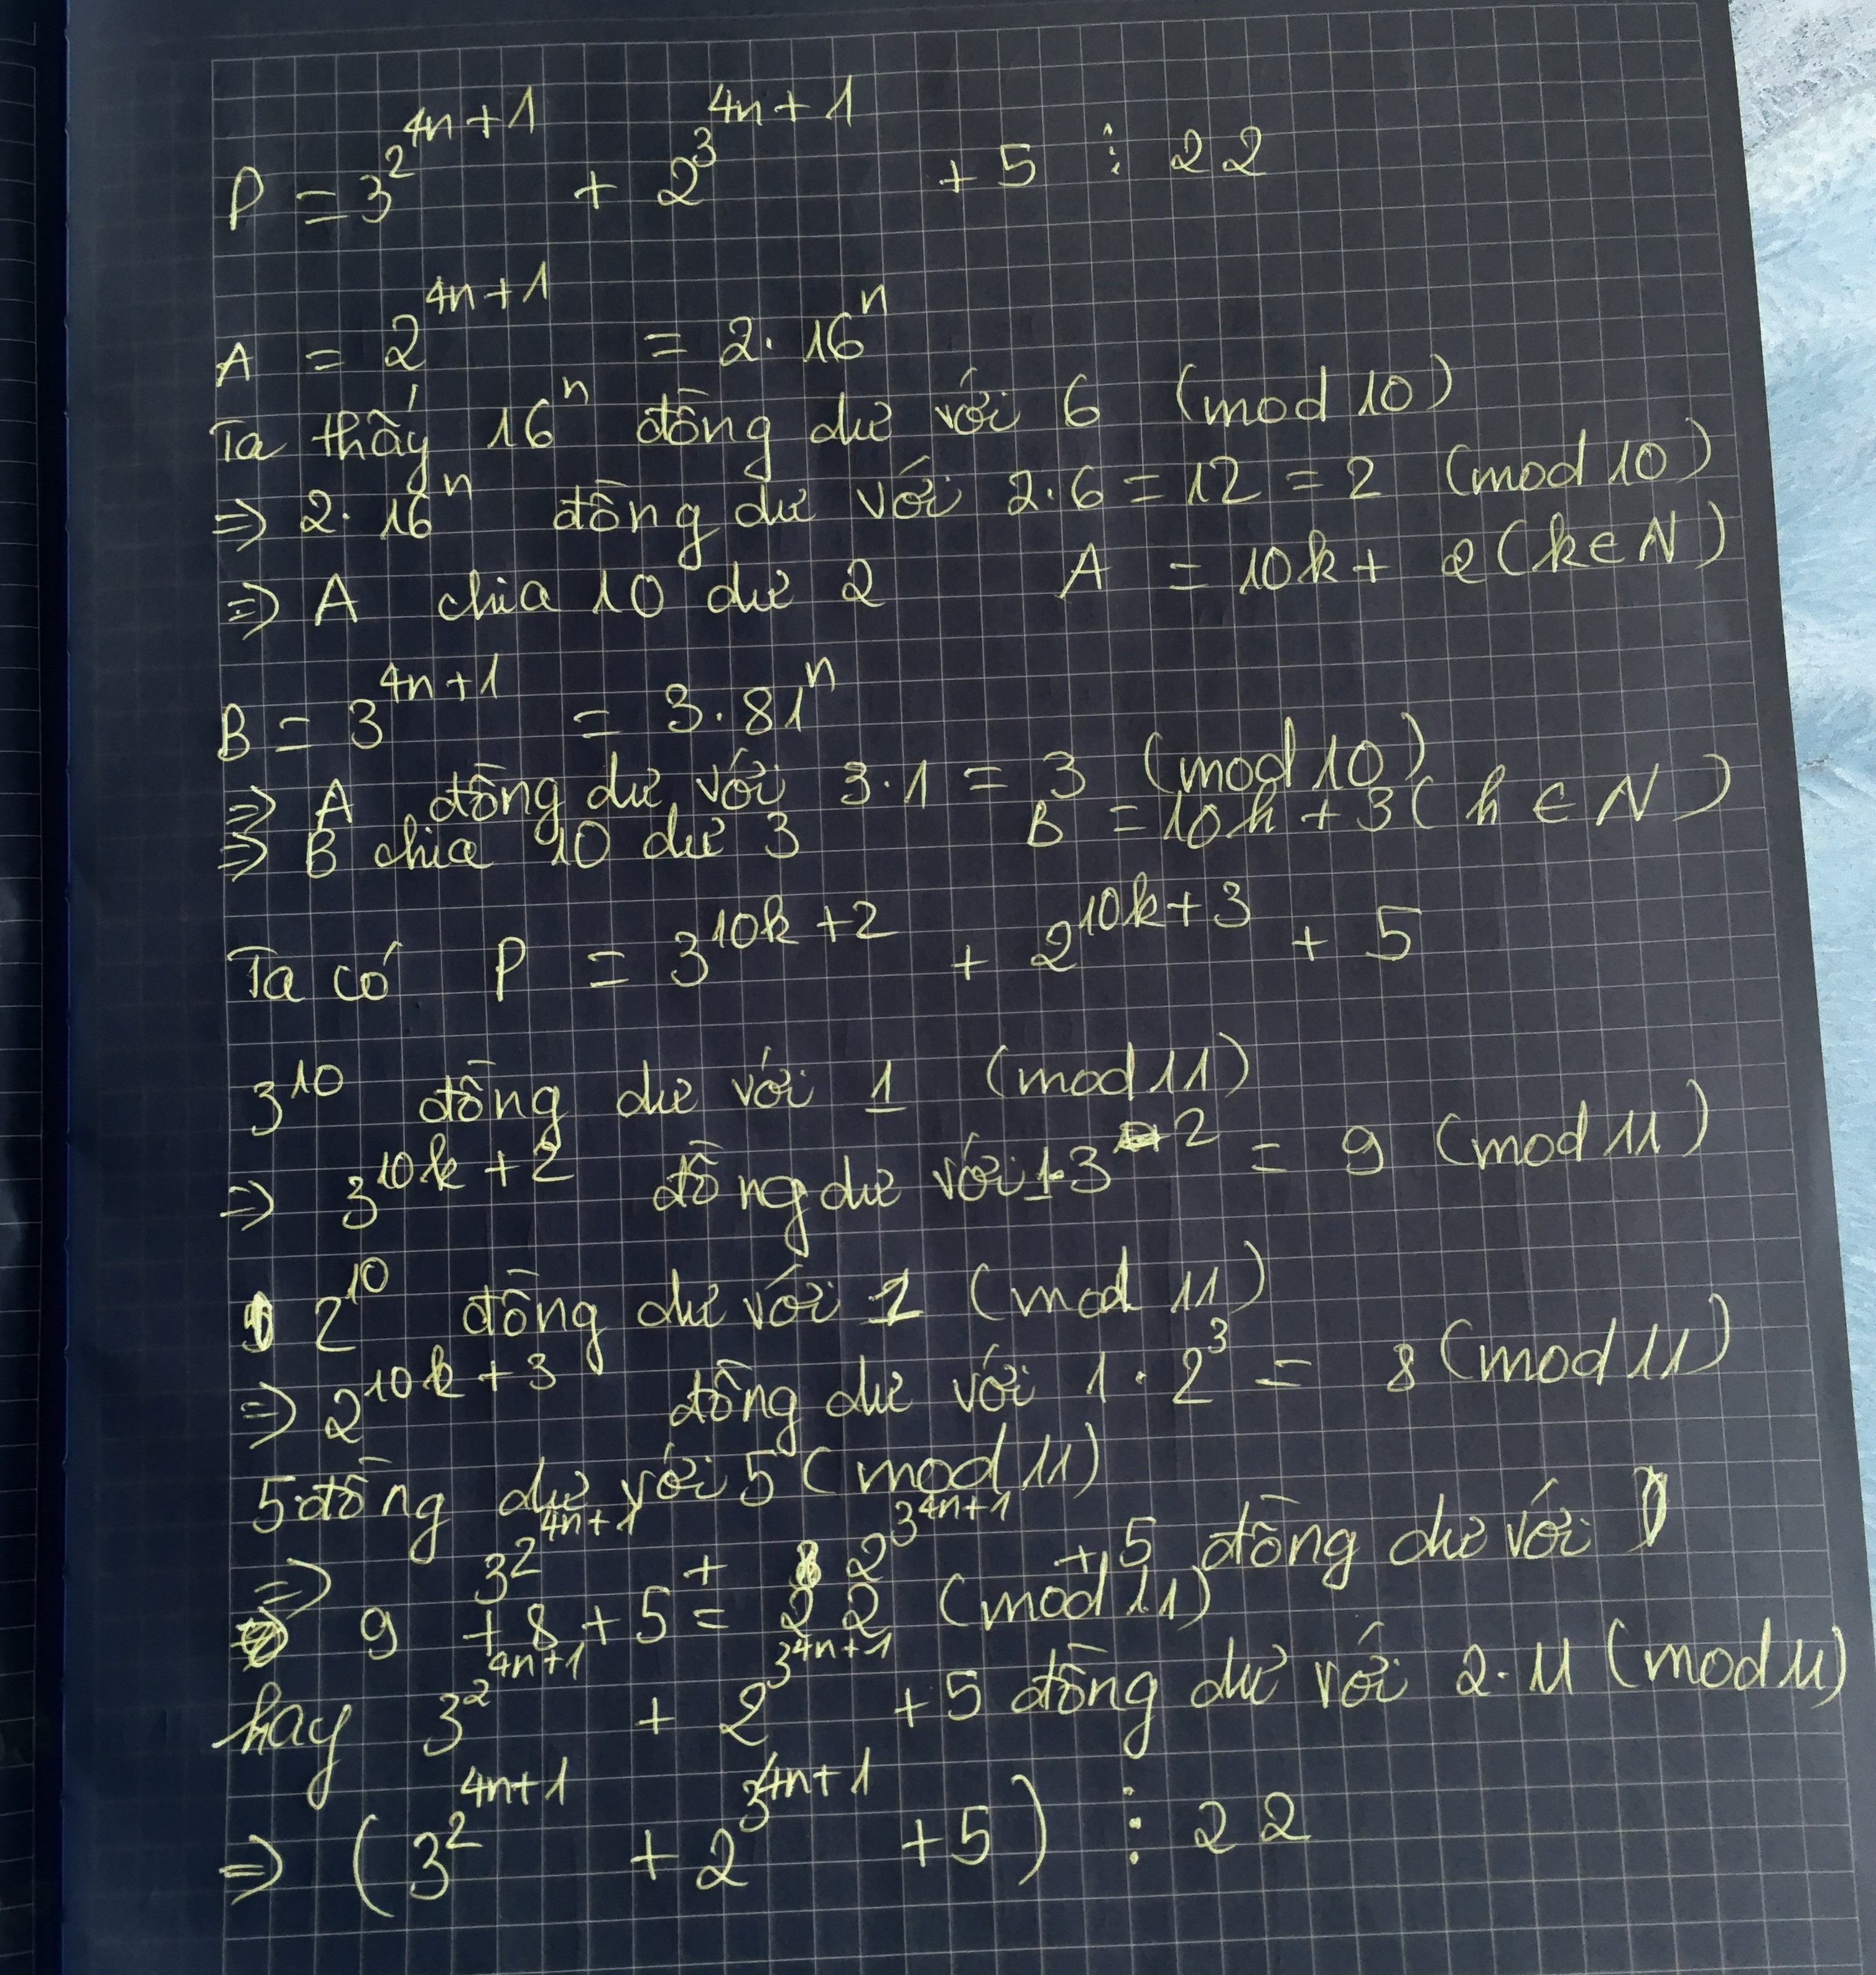 P = 3^2^4n+1 + 2^3^4n+1 + 5 ⋮ 22
A = 2^4n+1 = 2·16^n
Ta thấy 16^n đồng dư với 6 (mod 10)
⇒ 2·16^n đồng dư với 2·6 = 12 = 2 (mod 10)
⇒ A chia 10 dư 2 A = 10k + 2 (k∈N)
B = 3^4n+1 = 3·81^n
⇒ A đồng dư với 3·1 = 3 (mod 10)
⇒ B chia 10 dư 3 B = 10h + 3 (h ∈ N)
Ta có P = 3^10k+2 + 2^10k+3 + 5
3^10 đồng dư với 1 (mod 11)
⇒ 3^10k+2 đồng dư với 1·3^2 = 9 (mod 11)
2^10 đồng dư với 1 (mod 11)
⇒ 2^10k+3 đồng dư với 1·2^3 = 8 (mod 11)
5 đồng dư với 5 (mod 11)
⇒ 3^2^4n+1 + 2^3^4n+1 + 5 đồng dư với
9 + 8 + 5 = 22 (mod 11)
hay 3^2^4n+1 + 2^3^4n+1 + 5 đồng dư với 2·11 (mod 11)
⇒ (3^2^4n+1 + 2^3^4n+1 + 5) ⋮ 22